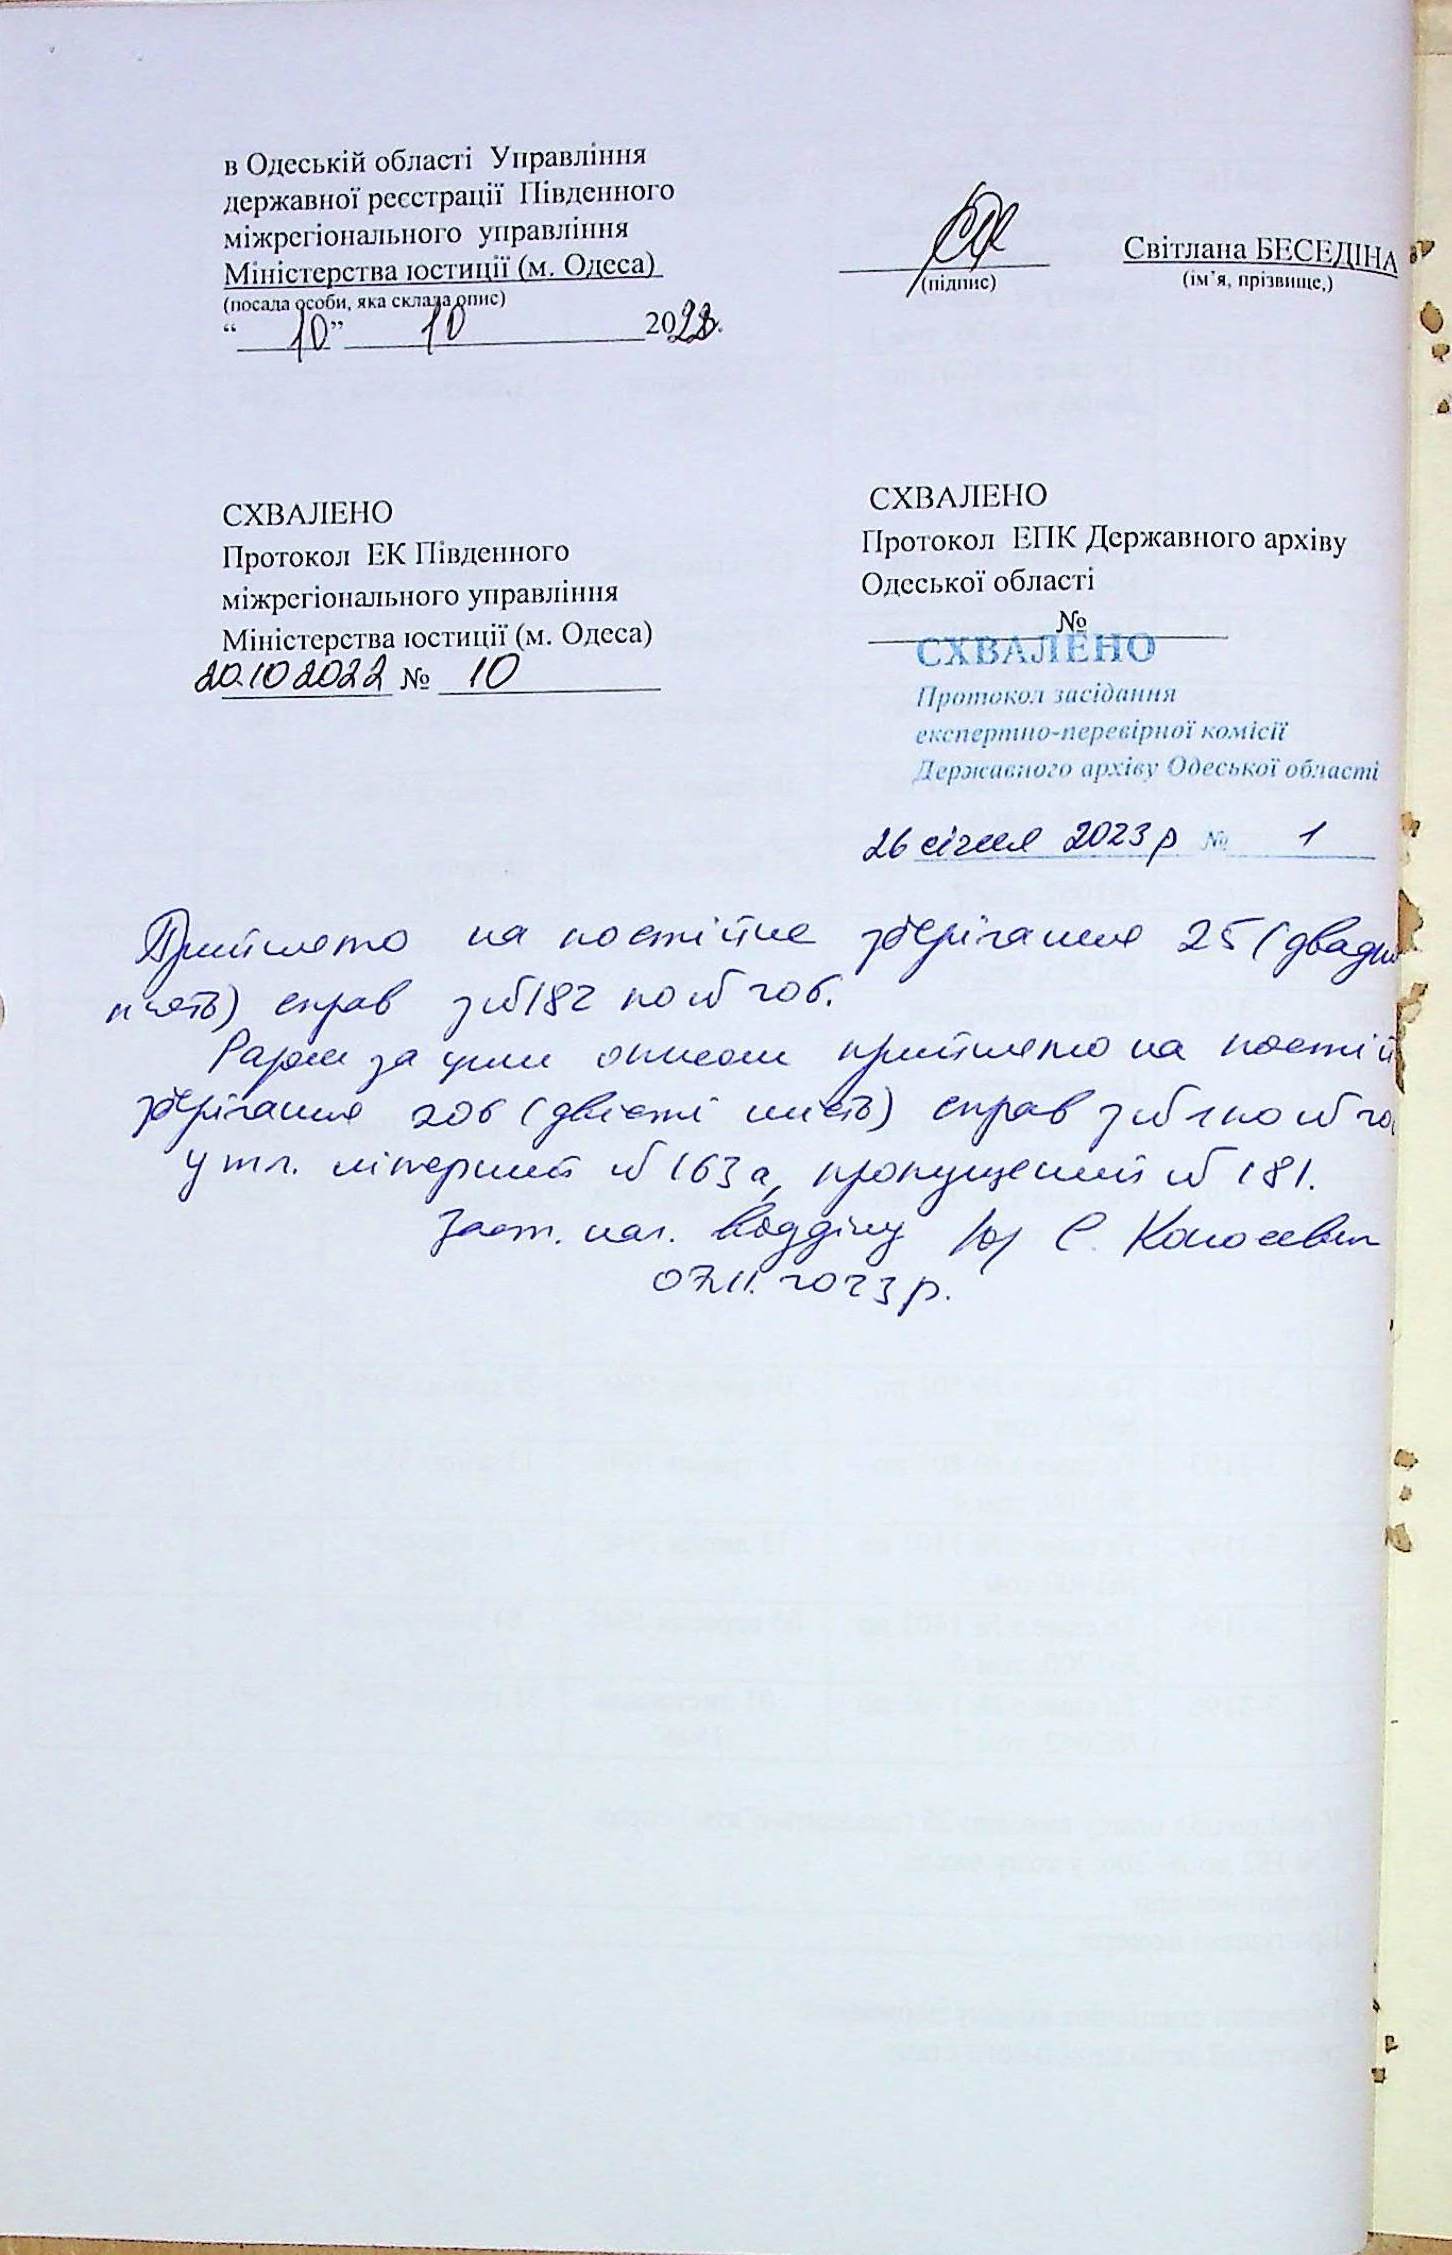 в Одеській області Управління
державної реєстрації Південного
міжрегіонального управління
Міністерства юстиції (м. Одеса)
(посада особи, яка склала опис)
“ 10 ” 10 2022р.
(підпис)
Світлана БЕСЕДІНА
(ім’я, прізвище,)
СХВАЛЕНО
Протокол ЕК Південного
міжрегіонального управління
Міністерства юстиції (м. Одеса)
20.10 2022 № 10
СХВАЛЕНО
Протокол ЕПК Державного архіву
Одеської області
№
СХВАЛЕНО
Протокол засідання
експертно-перевірної комісії
Державного архіву Одеської області
26 січня 2023 р № 1
Прийнято на постійне зберігання 25 (двадця
п'ять) справ з №182 по № 206.
Разом за цим описом прийнято на постій
зберігання 206 (двісті шість) справ з № 1 по № 20
у т.ч. літерний № 163а, пропущений № 181.
Заст. нач. відділу С.
07.11.2023 р.